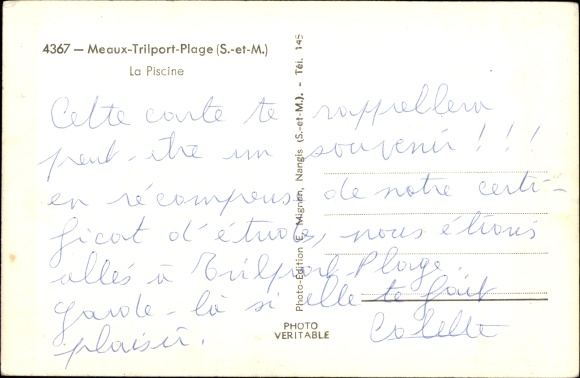 4367 — Meaux-Trilport-Plage (S.-et-M.)
La Piscine
Cette carte te rappellera
peut-être un souvenir ! ! !
en récompense de notre certi-
ficat d'études, nous étions
allés à Trilport-Plage.
garde-là si elle te fait
plaisir.
Colette
Photo-Edition E. Mignon, Nangis (S.-et-M.). - Tél. 145
PHOTO
VERITABLE